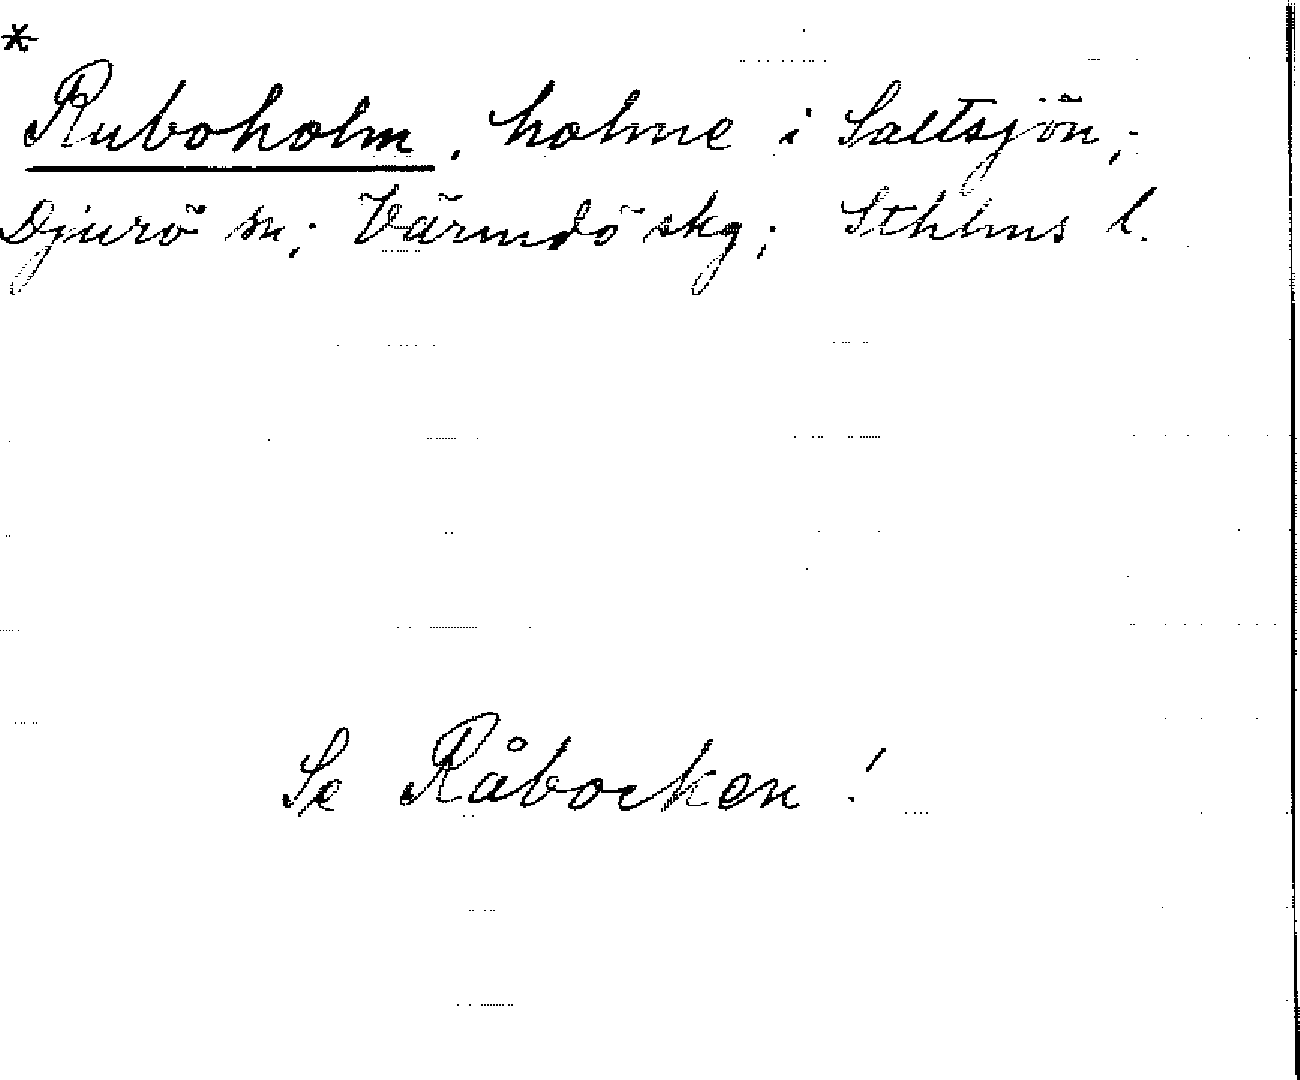 *
Ruboholm, holme i Saltsjön;
Djurö sn; Värmdö skg; Sthlms l.
Se Råbocken!